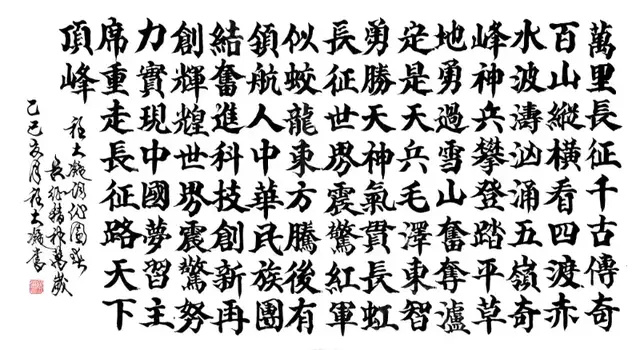 萬里長征千古傳奇
百山縱橫看四渡赤
水波濤汹涌五嶺奇
峰神兵攀登踏平草
地勇過雪山奮奪瀘
定是天兵毛澤東智
勇勝天神氣貫長虹
長征世界震驚紅軍
似蛟龍東方騰後有
領航人中華民族團
結奮進科技創新再
創輝煌世界震驚努
力實現中國夢習主
席重走長征路天下
頂峰
長征精神萬歲